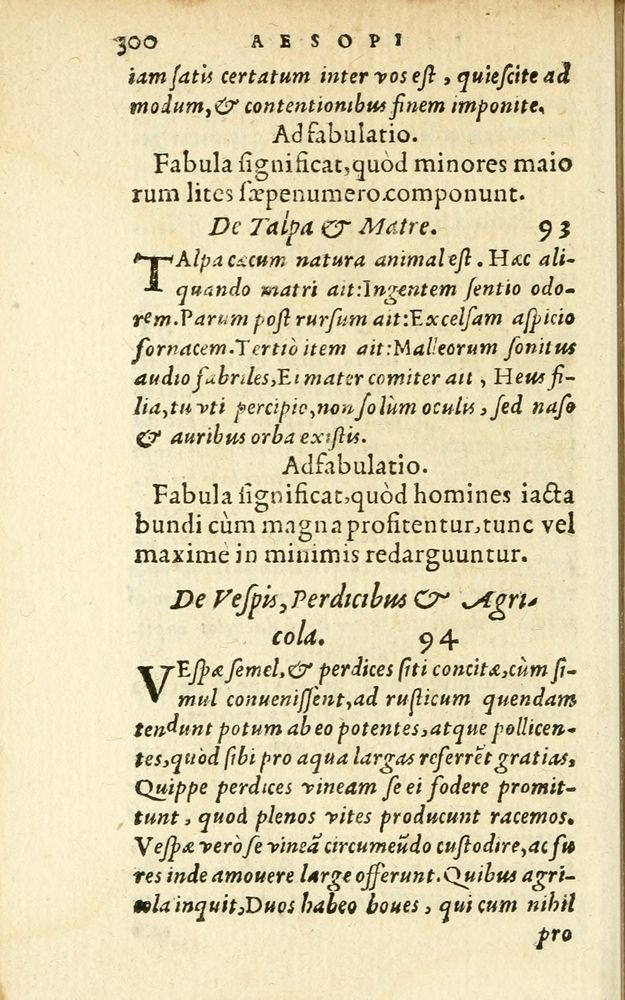 300 AESOPI
iam ſatis certatum inter vos eſt, quieſcite ad
modum, & contentionibus finem imponite.
Adfabulatio.
Fabula ſignificat, quòd minores maio
rum lites ſæpenumero componunt.
De Talpa & Matre. 93
TAlpa cæcum natura animal eſt. Hæc ali-
quando matri ait: Ingentem ſentio odo-
rem. Parum poſt rurſum ait: Excelſam aſpicio
fornacem. Tertiò item ait: Malleorum ſonitus
audio fabriles, Ei mater comiter ait, Heus fi-
lia, tu vti percipio, non ſolùm oculis, ſed naſo
& auribus orba exiſtis.
Adfabulatio.
Fabula ſignificat, quòd homines iacta
bundi cùm magna profitentur, tunc vel
maximè in minimis redarguuntur.
De Veſpis, Perdicibus & Agri-
cola. 94
VEſpæ ſemel, & perdices ſiti concitæ, cùm ſi-
mul conueniſſent, ad ruſticum quendam
tendunt potum ab eo potentes, atque pollicen-
tes, quòd ſibi pro aqua largas referrẽt gratias.
Quippe perdices vineam ſe ei fodere promit-
tunt, quod plenos vites producunt racemos.
Veſpæ verò ſe vineã circumeũdo cuſtodire, ac fu
res inde amouere large offerunt. Quibus agri-
cola inquit, Duos habeo boues, qui cum nihil
pro